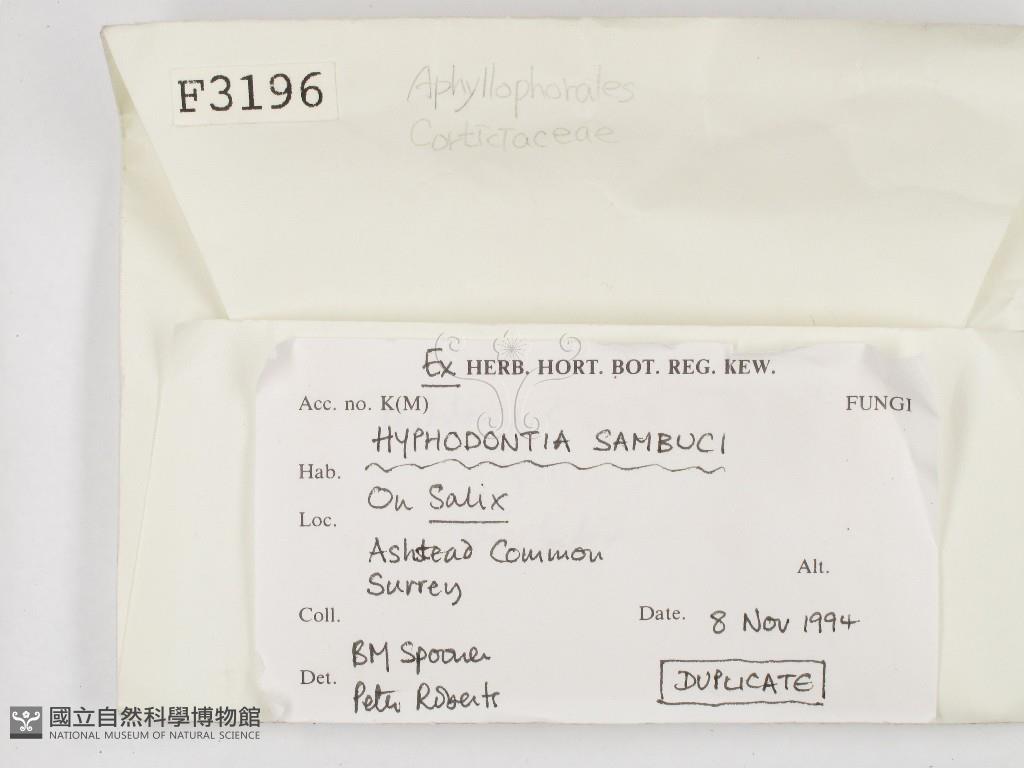 F3196
Aphyllophorales
Corticiaceae
Ex HERB. HORT. BOT. REG. KEW.
Acc. no. K(M)
FUNGI
HYPHODONTIA SAMBUCI
Hab.
On Salix
Loc.
Ashtead Common
Alt.
Surrey
Coll.
Date. 8 Nov 1994
BM Spooner
Det.
Peter Roberts
DUPLICATE
國立自然科學博物館
NATIONAL MUSEUM OF NATURAL SCIENCE